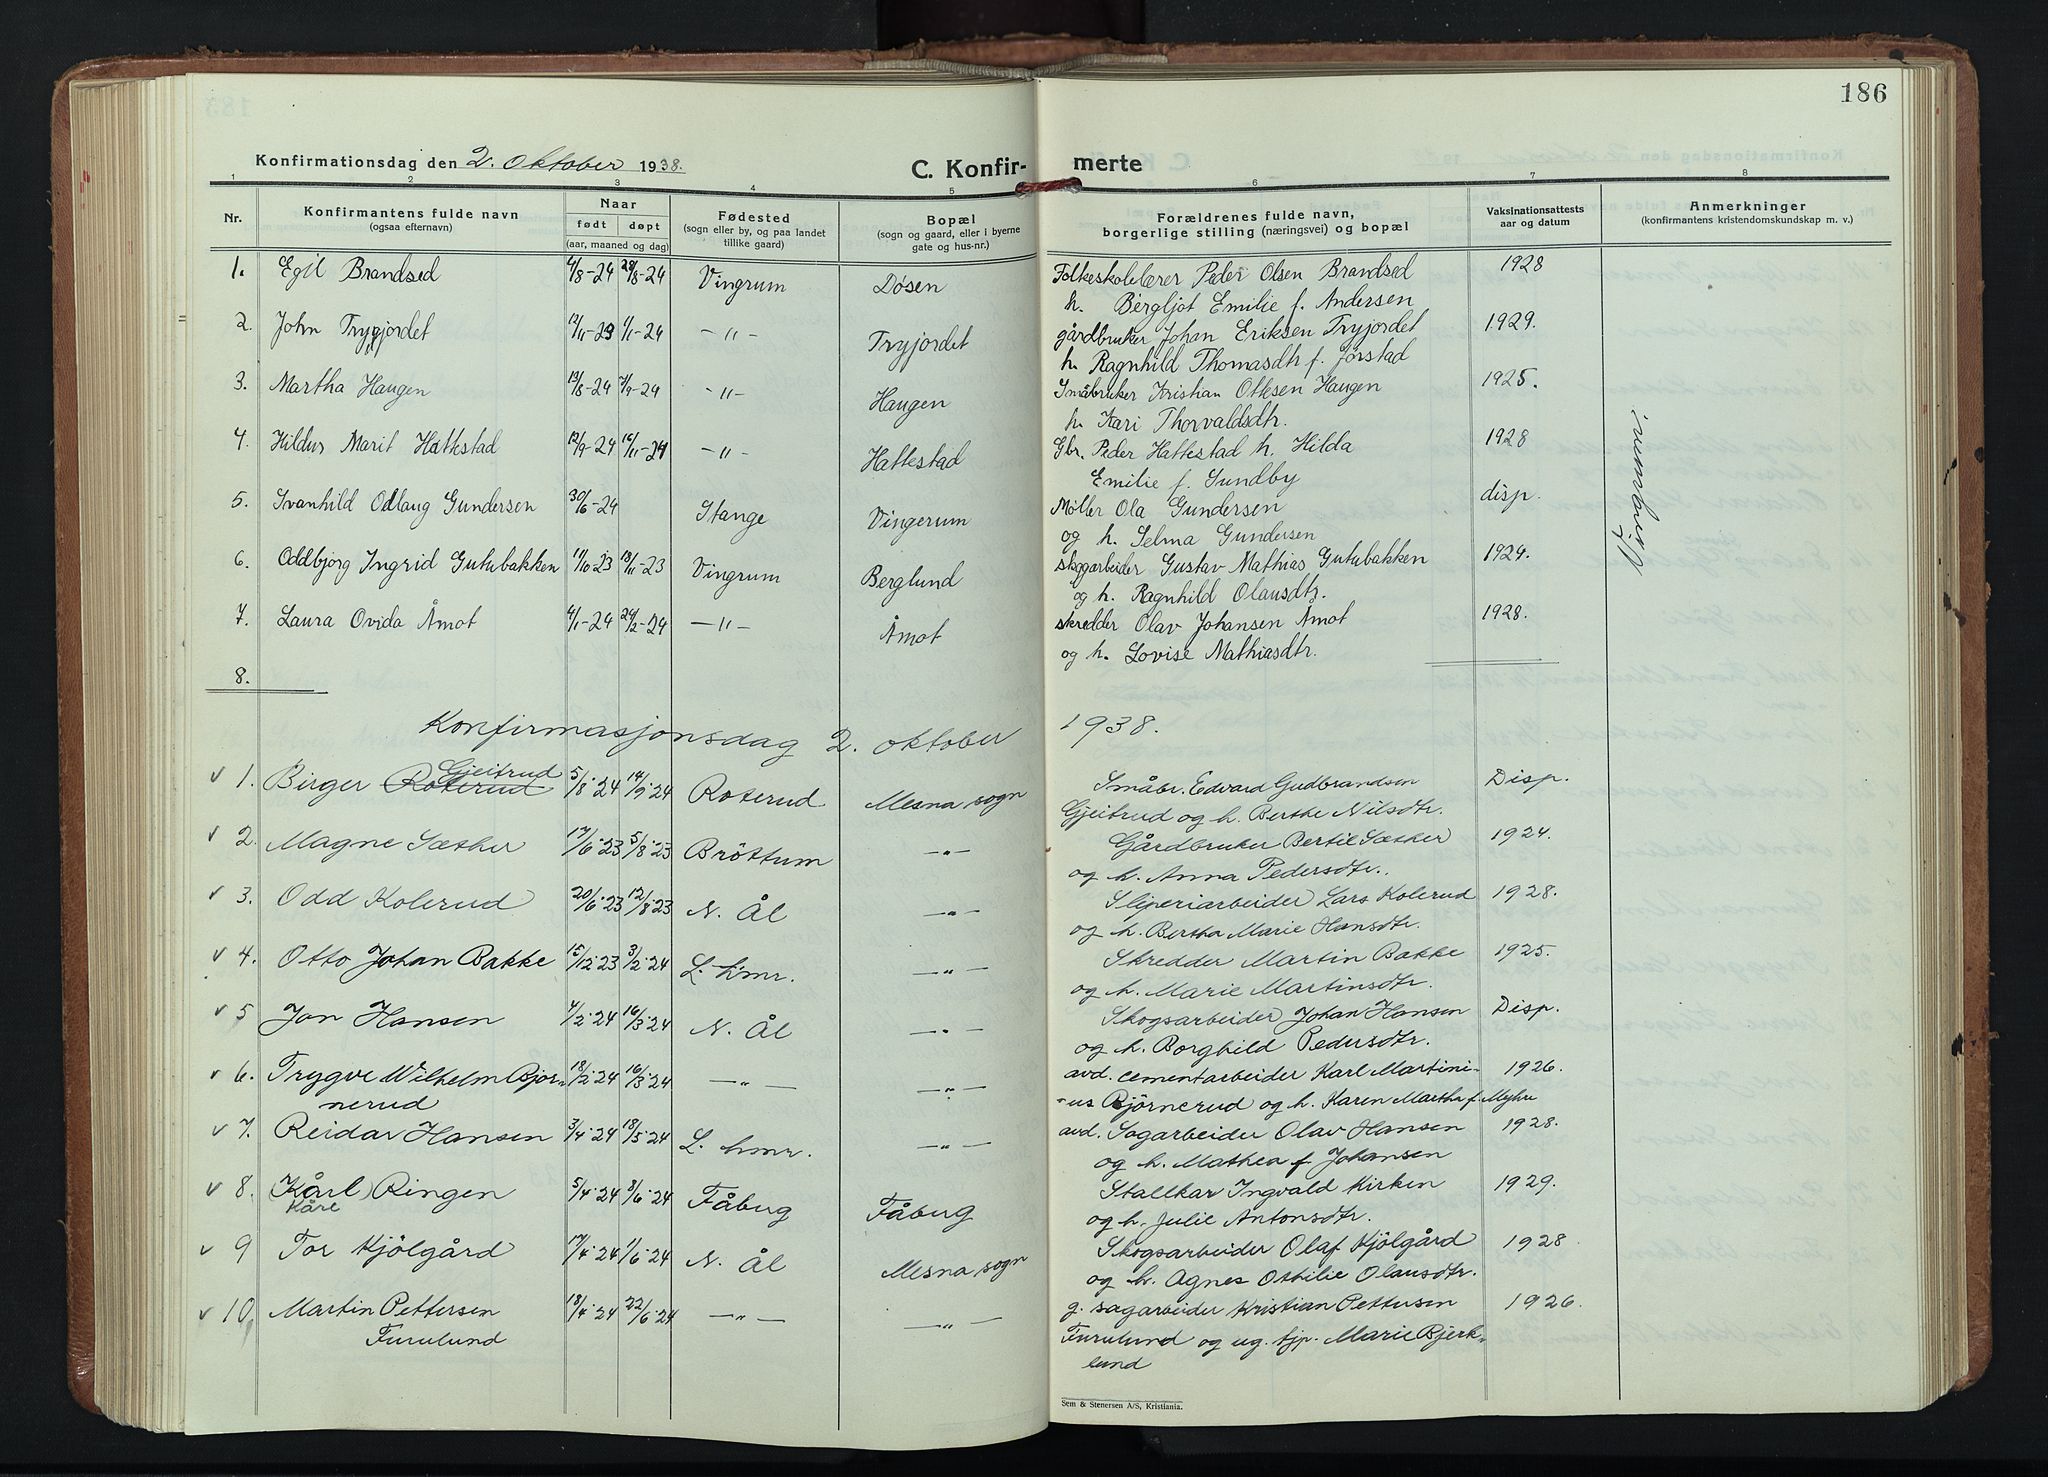 186
Konfirmationsdag den 2. oktober 1938.
C. Konfir-
merte
1 2 3 4 5 6 7 8
Nr.
Konfirmantens fulde navn
(ogsaa efternavn)
Naar
født døpt
(aar, maaned og dag)
Fødested
(sogn eller by, og paa landet
tillike gaard)
Bopæl
(sogn og gaard, eller i byerne
gate og hus-nr.)
Forældrenes fulde navn,
borgerlige stilling (næringsvei) og bopæl
Vaksinationsattests
aar og datum
Anmerkninger
(konfirmantens kristendomskundskap m. v.)
1. Egil Brandsed 4/8-24 28/8-24 Vingrum Døsen Folkeskolelærer Peder Olsen Brandsed 1928
h. Bergljot Emilie f. Andersen
2. John Tryjordet 12/11-23 1/1-24 -"- Tryjordet gårdbruker Johan Eriksen Tryjordet 1929.
h. Ragnhild Thomasdtr f. Jørstad
3. Martha Haugen 13/8-24 7/9-24 -"- Haugen Småbruker Kristian Ottesen Haugen 1925.
h. Kari Thorvaldsdtr.
4. Hildur Marit Hattestad 12/9-24 16/11-24 -"- Hattestad Gbr. Peder Hattestad h. Hilda 1928
Emilie f. Sundby
5. Svanhild Odlaug Gundersen 30/6-24 Stange Vingerum Møller Ola Gundersen disp.
og h. Selma Gundersen
6. Oddbjørg Ingrid Gutubakken 11/10-23 18/11-23 Vingrum Berglund skogarbeider Gustav Mathias Gutubakken 1924.
og h. Ragnhild Olausdtr.
7. Laura Ovida Åmot 4/1-24 24/2-24 -"- Åmot skredder Olav Johansen Åmot 1928.
og h. Lovise Mathiasdtr.
8.
Konfirmasjonsdag 2. oktober 1938.
Gjeitrud
v 1. Birger Roterud 5/8-24 14/9-24 Roterud Mesna sogn Småbr. Edvard Gudbrandsen Disp.
Gjeitrud og h. Berthe Nilsdtr.
v 2. Magne Sæther 17/6-23 5/8-23 Bröttum -"- Gårdbruker Bertil Sæther 1924.
og h. Anna Pedersdtr.
v 3. Odd Kolerud 20/6-23 12/8-23 N. Ål -"- Sliperiarbeider Lars Kolerud 1928.
og h. Bertha Marie Hansdtr.
v 4. Otto Johan Bakke 15/12-23 3/2-24 L.hmr. -"- Skredder Martin Bakke 1925.
og h. Marie Martinsdtr.
v 5 Jon Hansen 4/2-24 16/3-24 N. Ål -"- Skogsarbeider Johan Hansen Disp.
og h. Borghild Pedersdtr.
v 6. Trygve Wilhelm Björ- 18/2-24 16/3-24 -"- -"- avd. cementarbeider Karl Martini- 1926.
nerud -us Björnerud og h. Karen Martha f. Myhre
v 7. Reidar Hansen 3/4-24 18/5-24 L. hmr. -"- avd. Sagarbeider Olav Hansen 1928.
og h. Mathea f. Johansen
v 8. Kårl) Ringen 5/4-24 8/6-24 Fåbug Fåbug Stallkar Ingvald Kirken 1929.
Kåre og h. Julie Antonsdtr.
v 9 Tor Kjölgård 17/4-24 1/6-24 N. Ål Mesna sogn Skogsarbeider Olaf Kjölgård 1928
og h. Agnes Othilie Olausdtr.
v 10. Martin Pettersen 18/4-24 22/6-24 -"- -"- g. sagarbeider Kristian Pettersen 1926.
Furulund Furulund og ug. tjp. Marie Bjerk-
lund
Sem & Stenersen A/S, Kristiania.